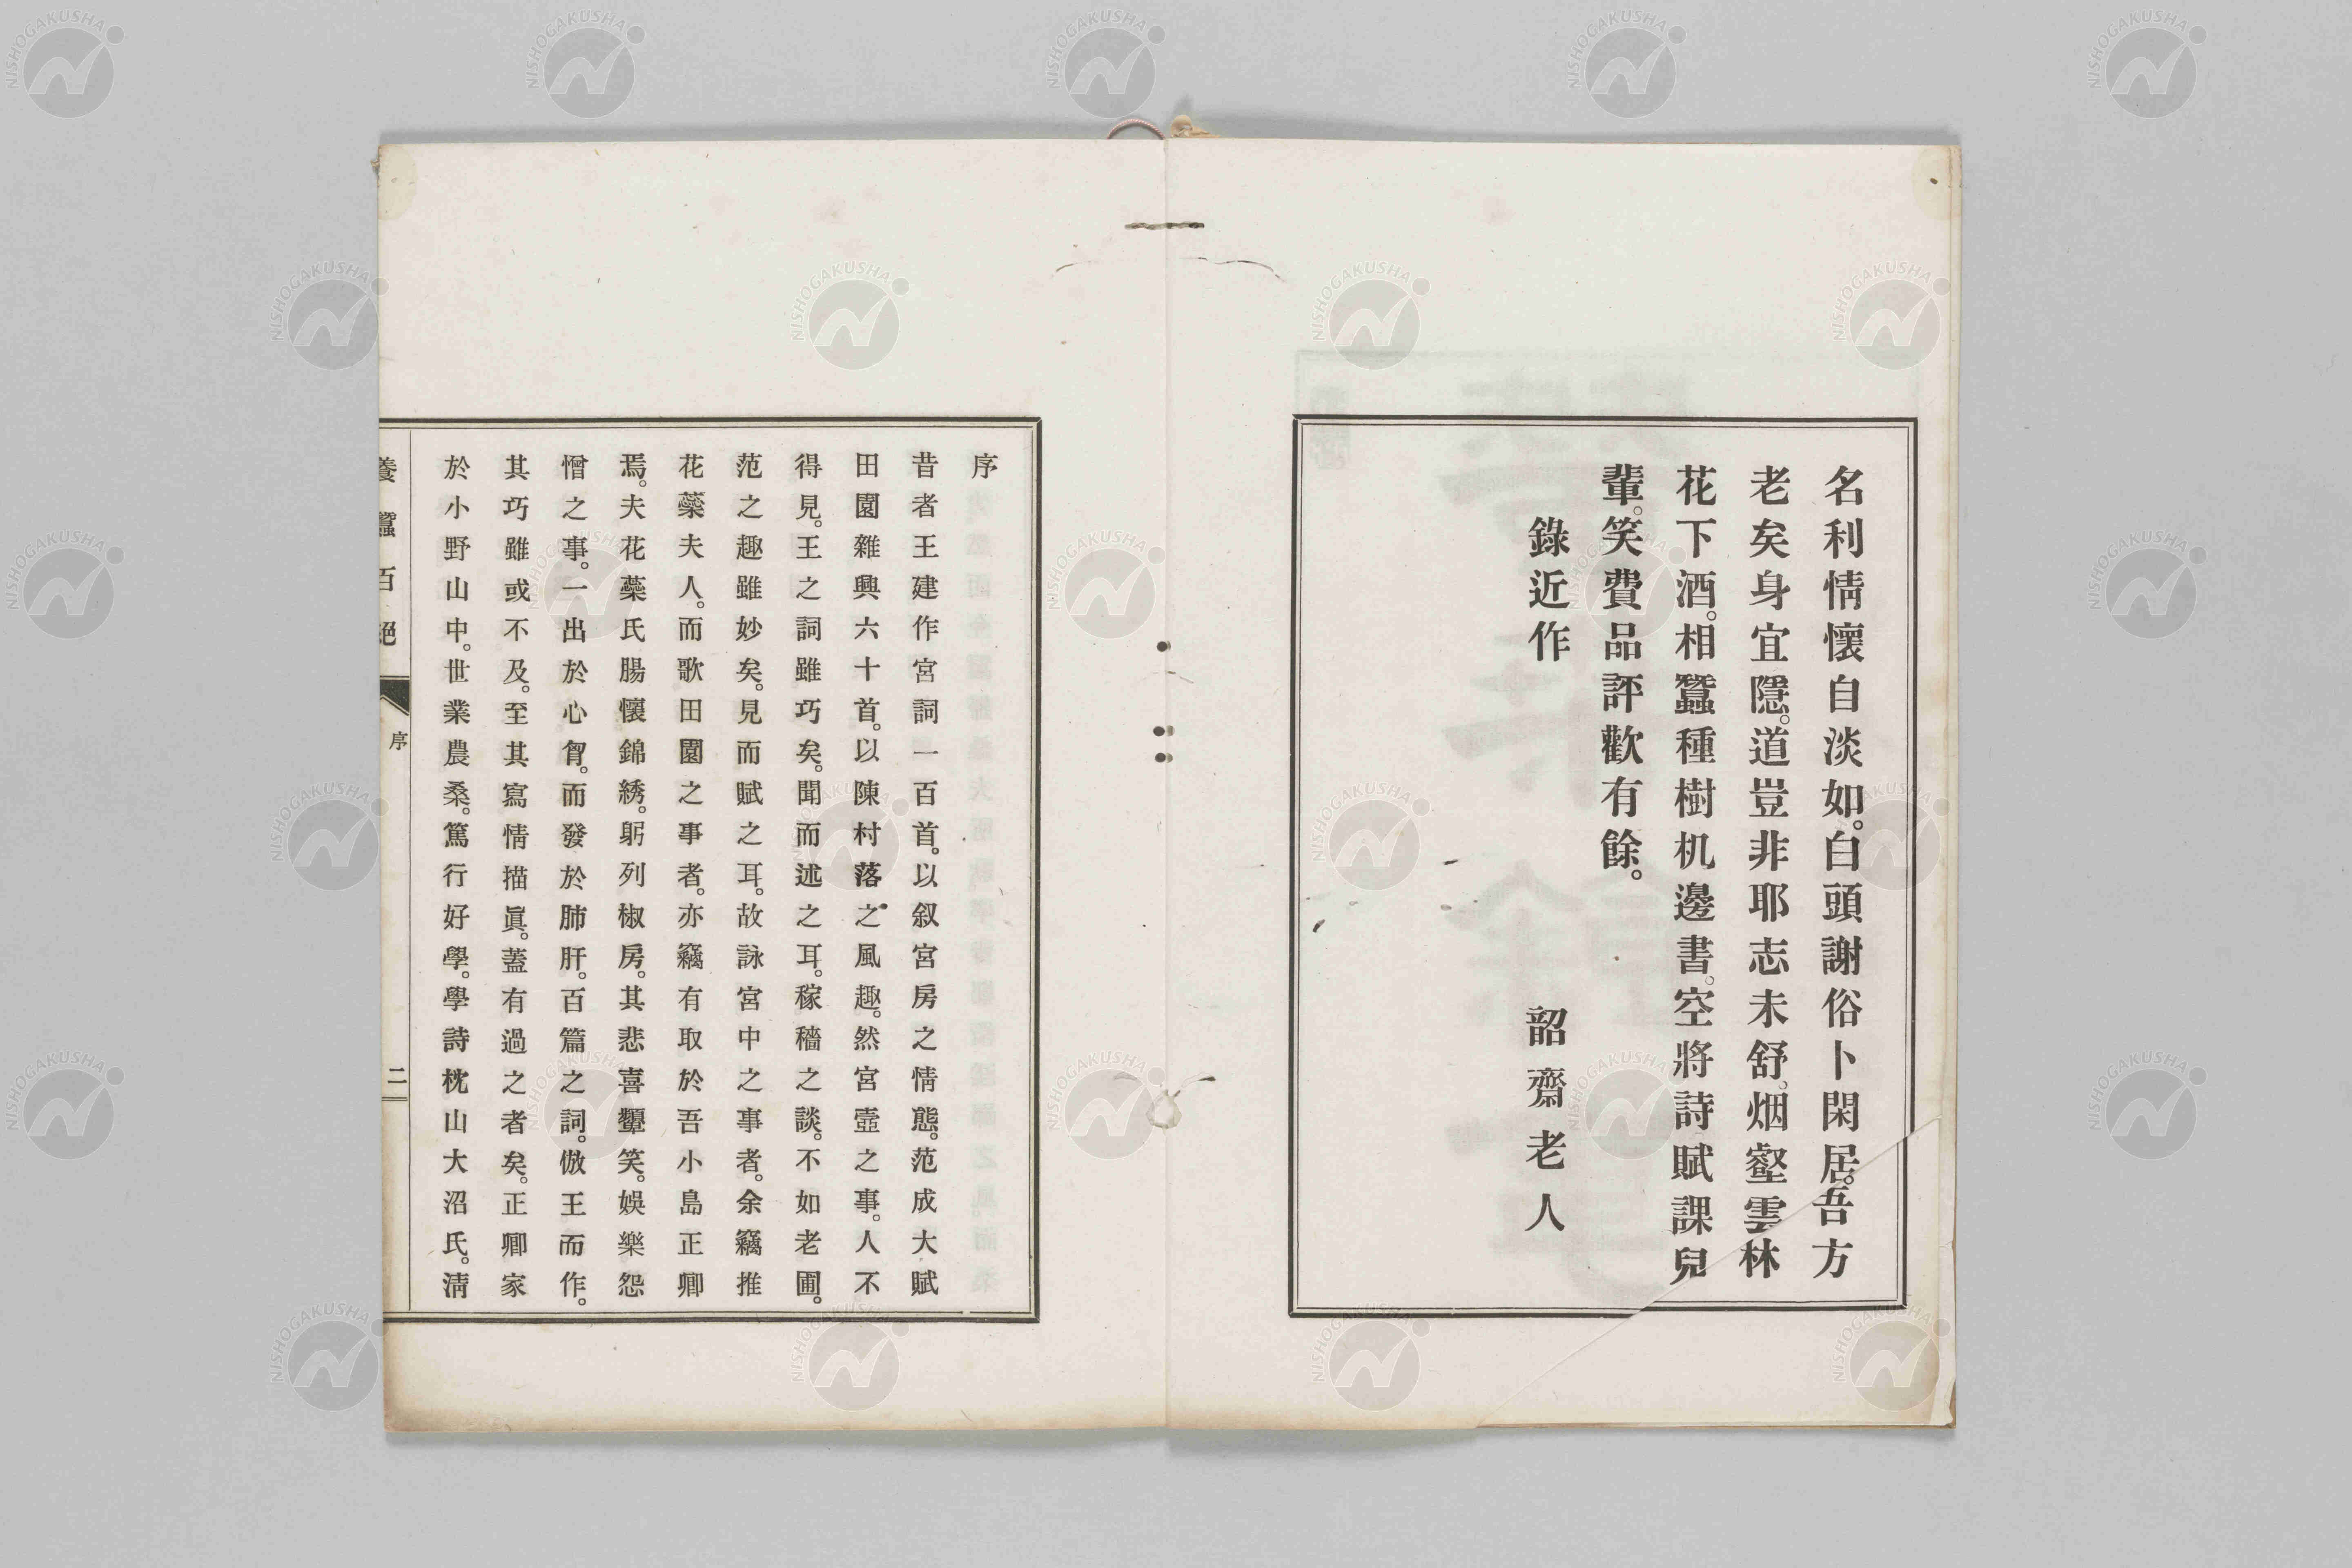 名利情懷自淡如。白頭謝俗卜閑居。吾方
老矣身宜隱。道豈非耶志未舒。烟壑雲林
花下酒。相蠶種樹机邊書。空將詩賦課兒
輩。笑費品評歡有餘。
錄近作 韶齋老人
序
昔者王建作宮詞一百首。以叙宮房之情態。范成大賦
田園雜興六十首。以陳村落之風趣。然宮壼之事。人不
得見。王之詞雖巧矣。聞而述之耳。稼穡之談。不如老圃。
范之趣雖妙矣。見而賦之耳。故詠宮中之事者。余竊推
花蘂夫人。而歌田園之事者。亦竊有取於吾小島正卿
焉。夫花蘂氏腸懷錦綉。躬列椒房。其悲喜顰笑。娛樂。怨
憎之事。一出於心胷。而發於肺肝。百篇之詞。倣王而作。
其巧雖或不及。至其寫情描眞。蓋有過之者矣。正卿家
於小野山中。世業農桑。篤行好學。學詩枕山大沼氏。淸
養蠶百絕 序 二
NISHOGAKUSHA